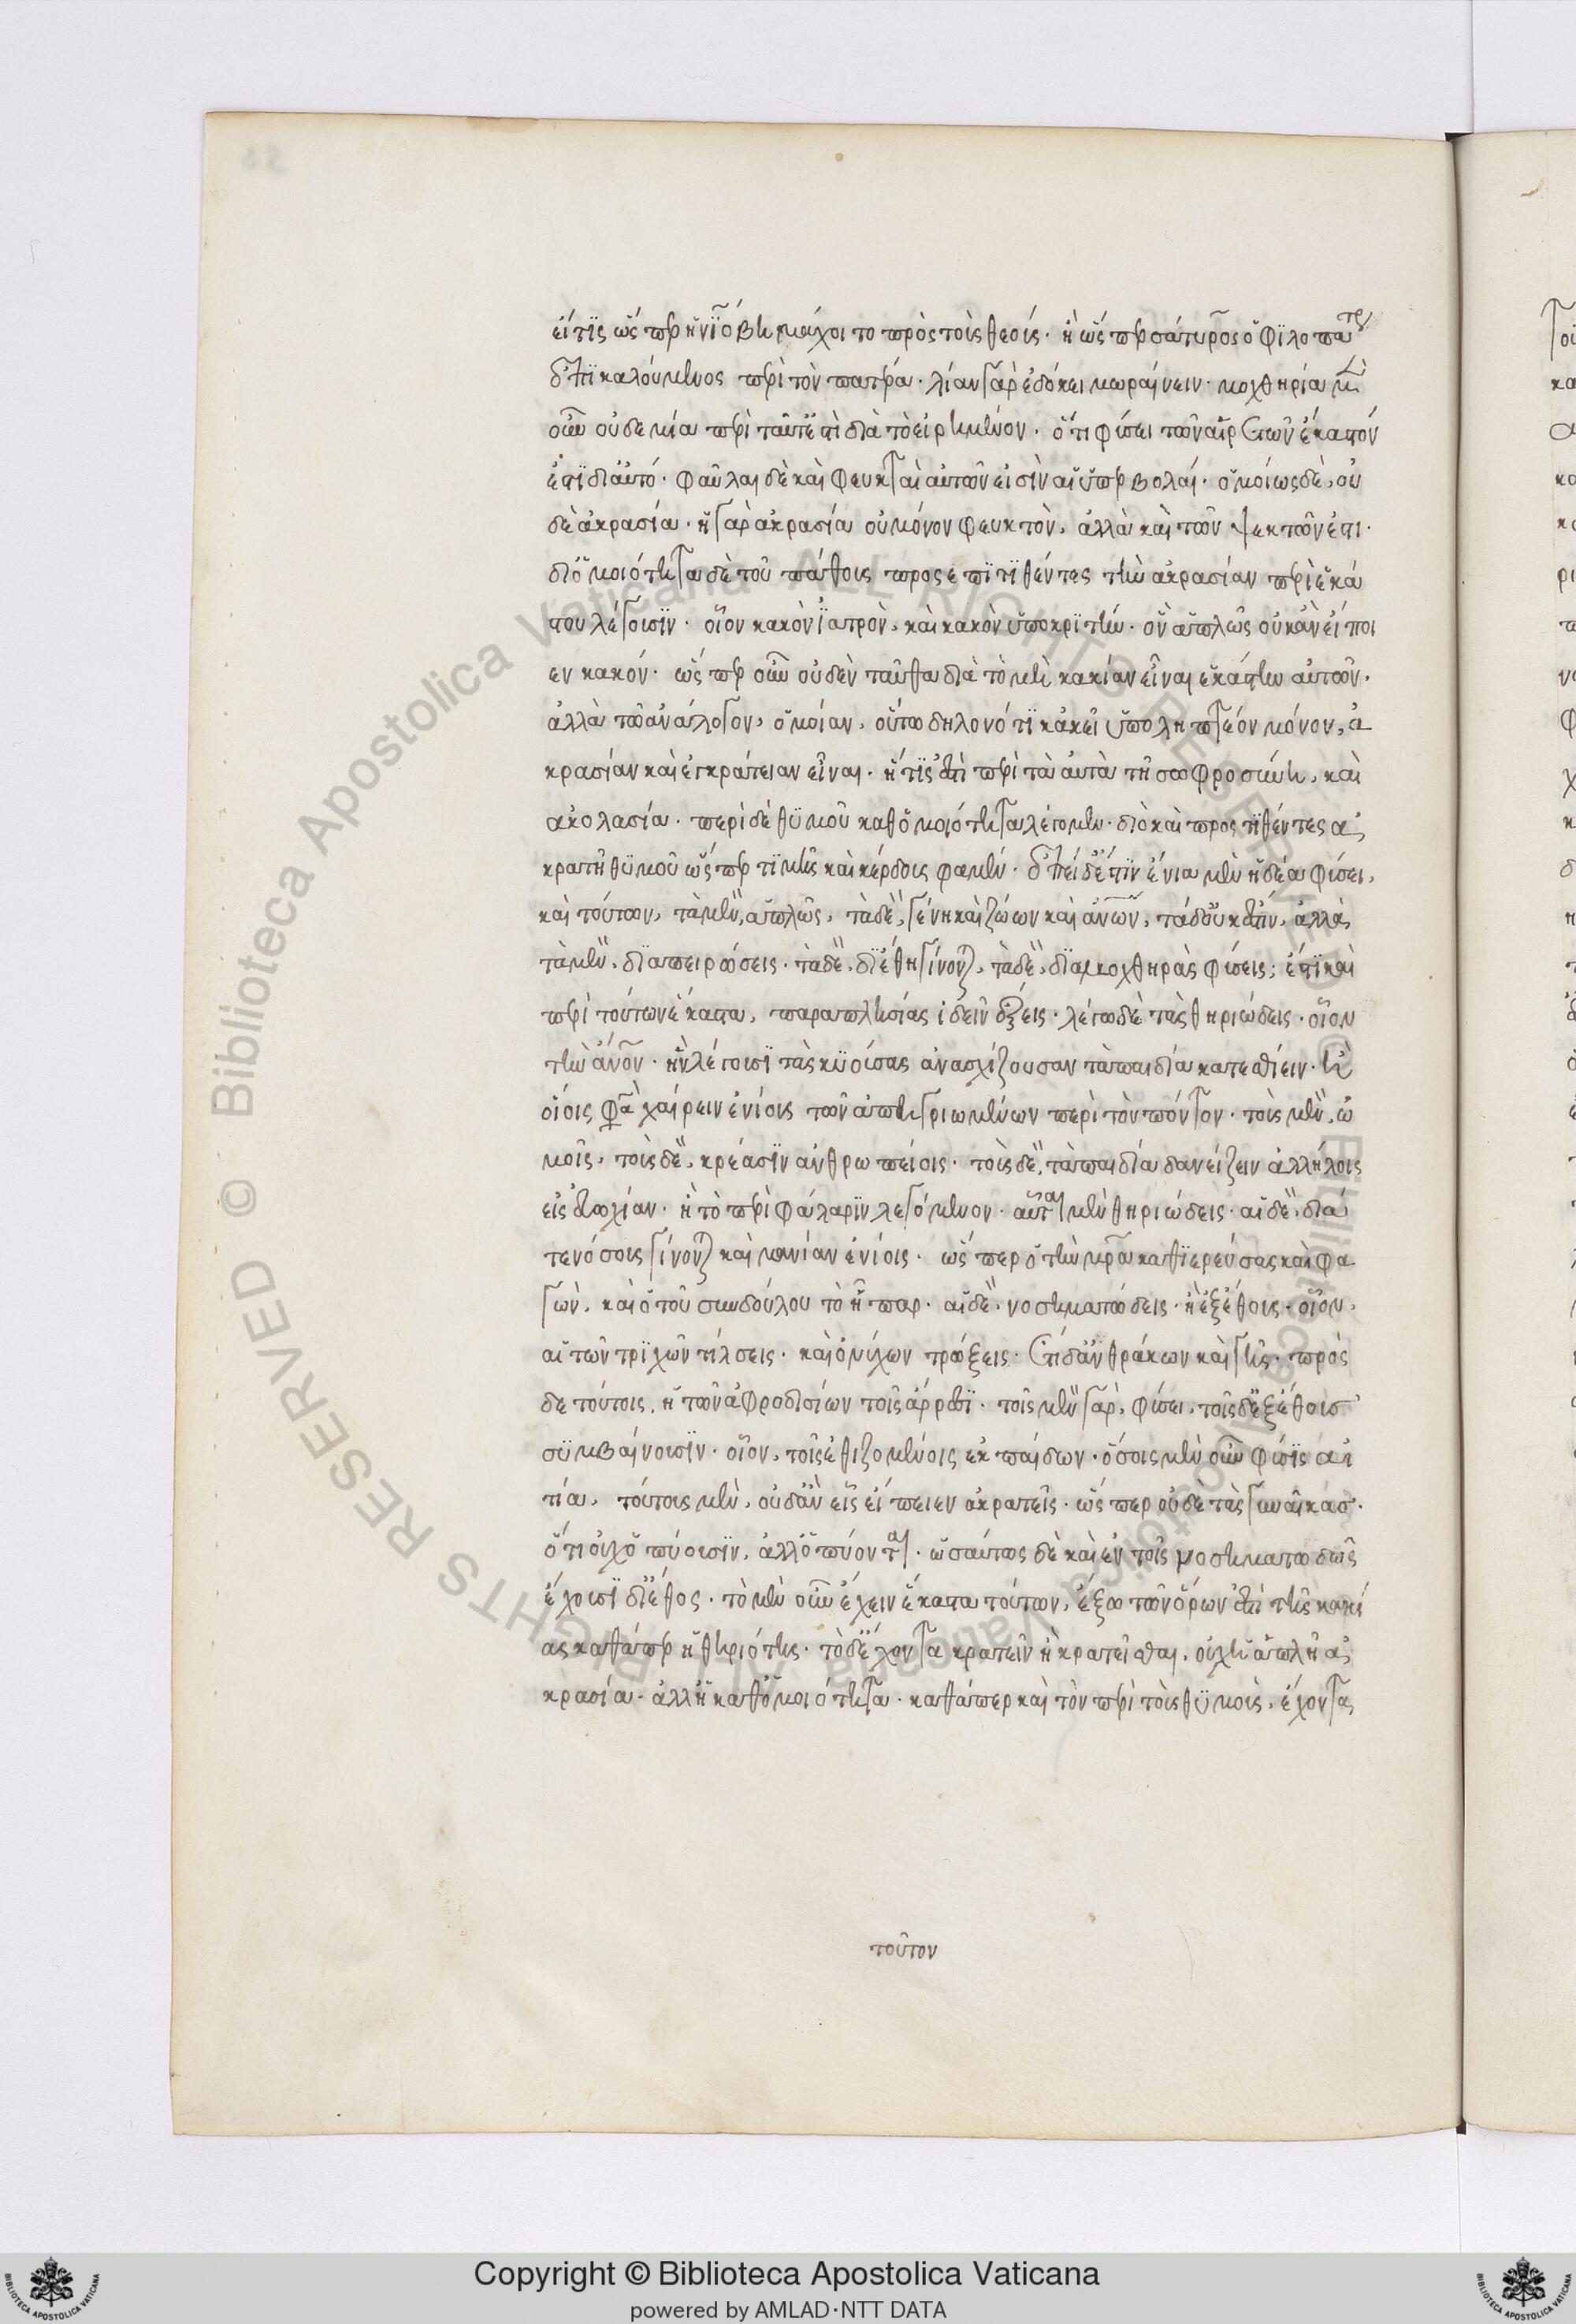 εἴτις ὥσπερ ἡ νιόβη μάχοιτο πρὸς τοὺς θεούς· ἢ ὥσπερ σάτυρος ὁ φιλοπάτωρ
ἐπικαλούμενος περὶ τὸν πατέρα· λίαν γὰρ ἐδόκει μωραίνειν· μοχθηρία μὲν
οὖν οὐδεμία περὶ ταῦτ' ἐστὶ διὰ τὸ εἰρημένον· ὅτι φύσει τῶν αἱρετῶν ἕκαστόν
ἐστι δι' αὑτό· φαῦλαι δὲ καὶ φευκταὶ αὐτῶν εἰσὶν αἱ ὑπερβολαί· ὁμοίως δὲ, οὐ
δὲ ἀκρασία· ἡ γὰρ ἀκρασία οὐ μόνον φευκτὸν, ἀλλὰ καὶ τῶν ψεκτῶν ἐστι·
δι' ὁμοιότητα δὲ τοῦ πάθους προσεπιτιθέντες τὴν ἀκρασίαν περὶ ἑκά
στου λέγουσιν· οἷον κακὸν ἰατρὸν, καὶ κακὸν ὑποκριτήν· ὃν ἁπλῶς οὐκ ἂν εἴποι
εν κακόν· ὥσπερ οὖν οὐδ' ἐνταῦθα διὰ τὸ μὴ κακίαν εἶναι ἑκάστην αὐτῶν,
ἀλλὰ τῶ ἀνάλογον, ὁμοίαν, οὕτω δηλονότι κἀκεῖ ὑποληπτέον μόνον, ἀ
κρασίαν καὶ ἐγκράτειαν εἶναι· ἥτις ἐστὶ περὶ τὰ αὐτὰ τῆ σωφροσύνη, καὶ
ἀκολασία· περὶ δὲ θυμοῦ καθ' ὁμοιότητα λέγομεν· διὸ καὶ προστιθέντες ἀ
κρατῆ θυμοῦ ὥσπερ τιμῆς καὶ κέρδους φαμέν· ἐπεὶ δ' ἔστιν ἔνια μὲν ἡδέα φύσει,
καὶ τούτων, τὰ μὲν, ἁπλῶς, τὰ δὲ, γένη καὶ ζώων καὶ ἀνων, τὰ δ' οὐκ ἔστιν, ἀλλὰ
τὰ μὲν, διὰ πειρώσεις· τὰ δὲ, δι' ἔθη γίνονται, τὰ δὲ, διὰ μοχθηρὰς φύσεις; ἔστι καὶ
περὶ τούτων ἕκαστα, παραπλησίας ἰδεῖν ἕξεις· λέγω δὲ τὰς θηριώδεις· οἷον
τὴν ἄνον· ἣν λέγουσι τὰς κυούσας ἀνασχίζουσαν τὰ παιδία κατεσθίειν· ἢ
οἵοις φασὶ χαίρειν ἐνίους τῶν ἀπηγριωμένων περὶ τὸν πόντον· τοὺς μὲν, ὠ
μοῖς, τοὺς δὲ, κρέασιν ἀνθρωπείοις· τοὺς δὲ, τὰ παιδία δανείζειν ἀλλήλοις
εἰς εὐωχίαν· ἢ τὸ περὶ φάλαριν λεγόμενον· αὗται μὲν θηριώδεις· αἱ δὲ, διά
τε νόσους γίνονται καὶ μανίαν ἐνίοις· ὥσπερ ὁ τὴν μρα καθιερεύσας καὶ φα
γὼν, καὶ ὁ τοῦ συνδούλου τὸ ἧπαρ· αἱ δὲ, νοσηματώδεις· ἢ ἐξ ἔθους· οἷον,
αἱ τῶν τριχῶν τίλσεις· καὶ ὀνύχων τρώξεις· ἔτι δ' ἀνθράκων καὶ γῆς· πρὸς
δε τούτοις, ἡ τῶν ἀφροδισίων τοῖς ἄρρεσι· τοῖς μὲν γὰρ, φύσει, τοῖς δ' ἐξ ἔθους
συμβαίνουσιν· οἷον, τοῖς ἐθιζομένοις ἐκ παίδων· ὅσοις μὲν οὖν φύσις αἰ
τία, τούτους μὲν, οὐδ' ἂν εἷς εἴπειεν ἀκρατεῖς· ὥσπερ οὐδὲ τὰς γυναῖκας·
ὅτι οὐχ ὀπύουσιν, ἀλλ' ὀπύονται· ὡσαύτως δὲ καὶ ἐν τοῖς νοσηματωδῶς
ἔχουσι δι' ἔθος· τὸ μὲν οὖν ἔχειν ἕκαστα τούτων, ἔξω τῶν ὅρων ἐστὶ τῆς κακί
ας καθάπερ ἡ θηριότης· τὸ δ' ἔχοντα κρατεῖν ἢ κρατεῖσθαι, οὐχ ἡ ἁπλῆ ἀ
κρασία· ἀλλ' ἡ καθ' ὁμοιότητα· καθάπερ καὶ τὸν περὶ τοὺς θυμοὺς, ἔχοντα
τοῦτον
Copyright © Biblioteca Apostolica Vaticana
powered by AMLAD·NTT DATA
Biblioteca Apostolica Vaticana ALL RIGHTS RESERVED ©